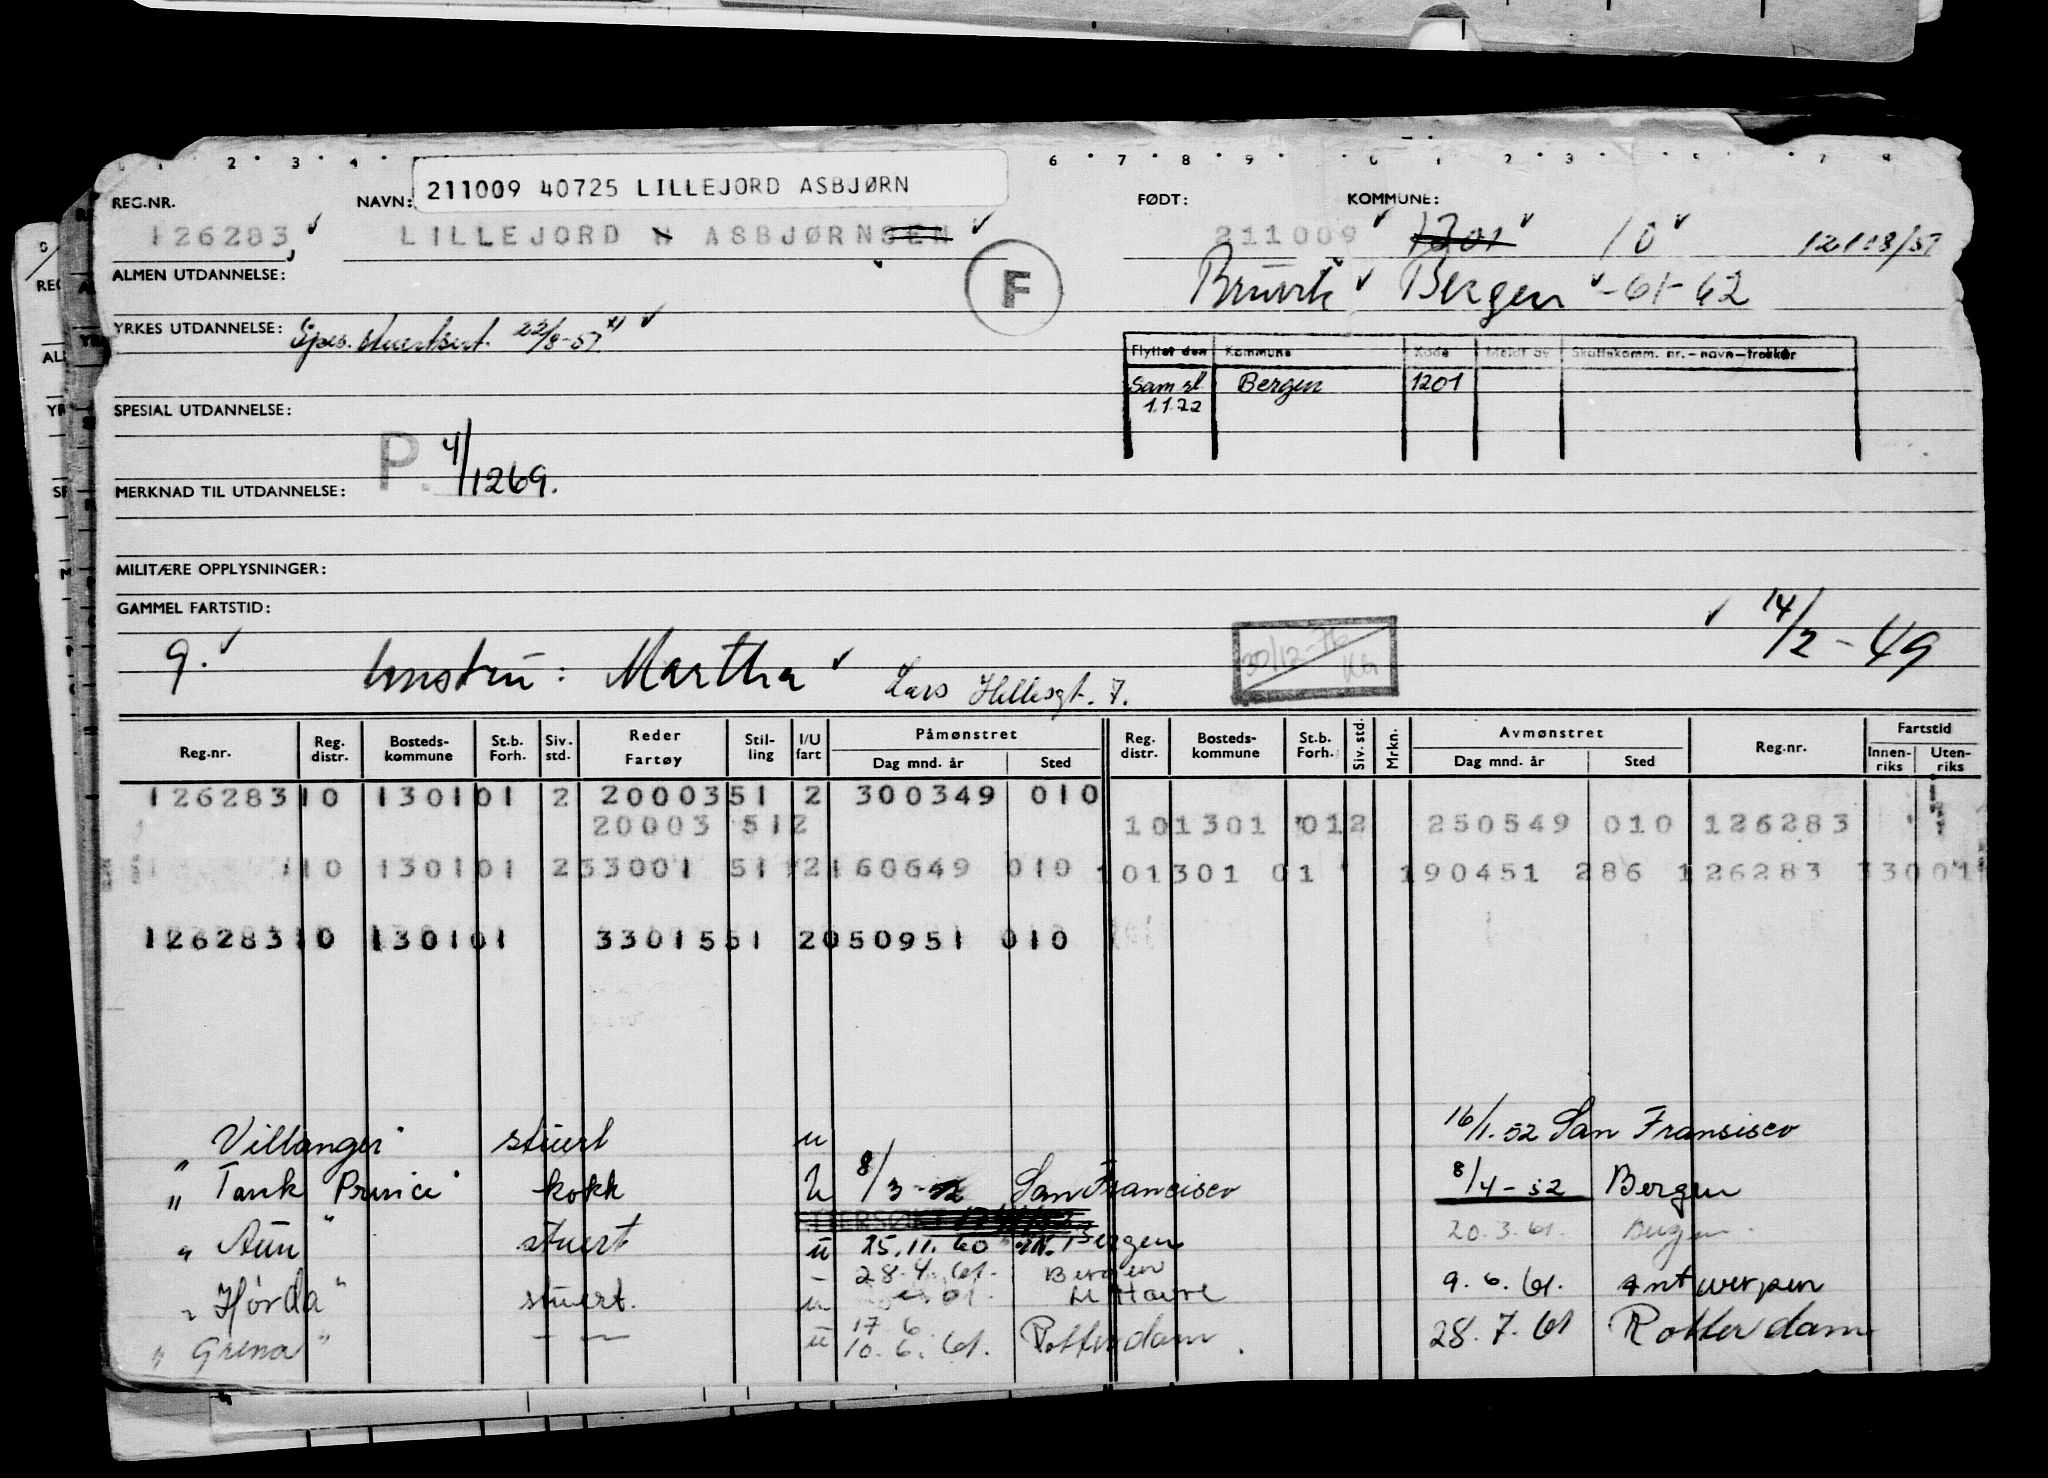 2 3 4 6 7 8 9 0 1 2 3 7 8
REG.NR. NAVN: 211009 40725 LILLEJORD ASBJØRN FØDT: KOMMUNE:
126283 LILLEJORD N ASBJØRNSEN 211009 1201 10
ALMEN UTDANNELSE: F Bruvik Bergen -61-62
YRKES UTDANNELSE: Spes. stuertsert. 22/8-57 x)
Flyttet den Kommune Kode Meldt av Skattekomm. nr.-navn-trekkår
Samsl Bergen 1201
1.1.72
SPESIAL UTDANNELSE:
P. 4/1269.
MERKNAD TIL UTDANNELSE:
MILITÆRE OPPLYSNINGER:
GAMMEL FARTSTID:
14/2-49
g. hustru: Martha Lars Hillesgt. 7. 30/12-76
Reg.nr. Reg. distr. Bosteds-kommune St.b. Forh. Siv. std. Reder Fartøy Stil-ling I/U fart Påmønstret Dag mnd. år Sted Reg. distr. Bosteds-kommune St.b. Forh. Siv. std. Mrkn. Avmønstret Dag mnd. år Sted Reg.nr. Fartstid Innen-riks Uten-riks
126283 10 1301 01 2 20003 51 2 300349 010
20003 51 2 10 1301 01 2 250549 010 126283
10 1301 01 2 33001 51 2 160649 010 10 1301 01 190451 286 126283 33001
126283 10 1301 01 33015 51 2 050951 010
"Villanger" stuert u 16/1.52 San Fransisco
"Tank Prince" kokk u 8/3-52 San Francisco 8/4-52 Bergen
ETTERSØKT
"Aun" stuert u 25.11.60 Bergen 20.3.61. Bergen
28.4.61. Bergen
"Hørda" stuert. u Le Havre 9.6.61. Antwerpen
17 6
"Grena" — — u 10.6.61. Rotterdam. 28.7.61 Rotterdam